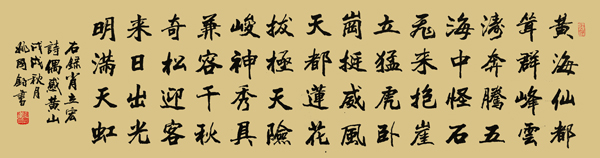 黄海仙都
聳群峰雲
濤奔騰五
海中怪石
飛来抱崖
立猛虎卧
崗挺威風
天都蓮花
拔極天險
峻神秀具
兼容千秋
奇松迎客
来日出光
明滿天虹
右録肖立宏
詩偶感黄山
戊戌秋月
姚國書